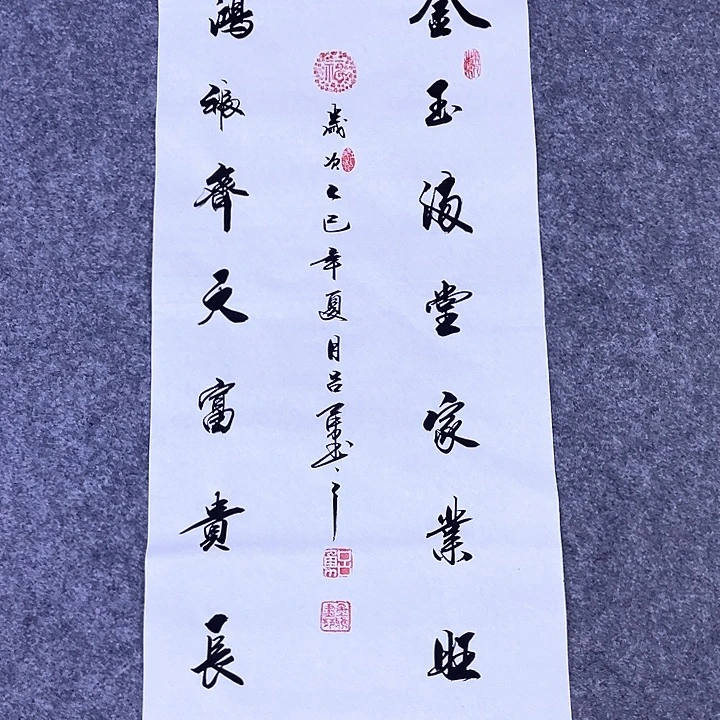 金玉滿堂家業旺
歲次乙巳年夏月呂軍書
鴻福齊天富貴長
福
呂